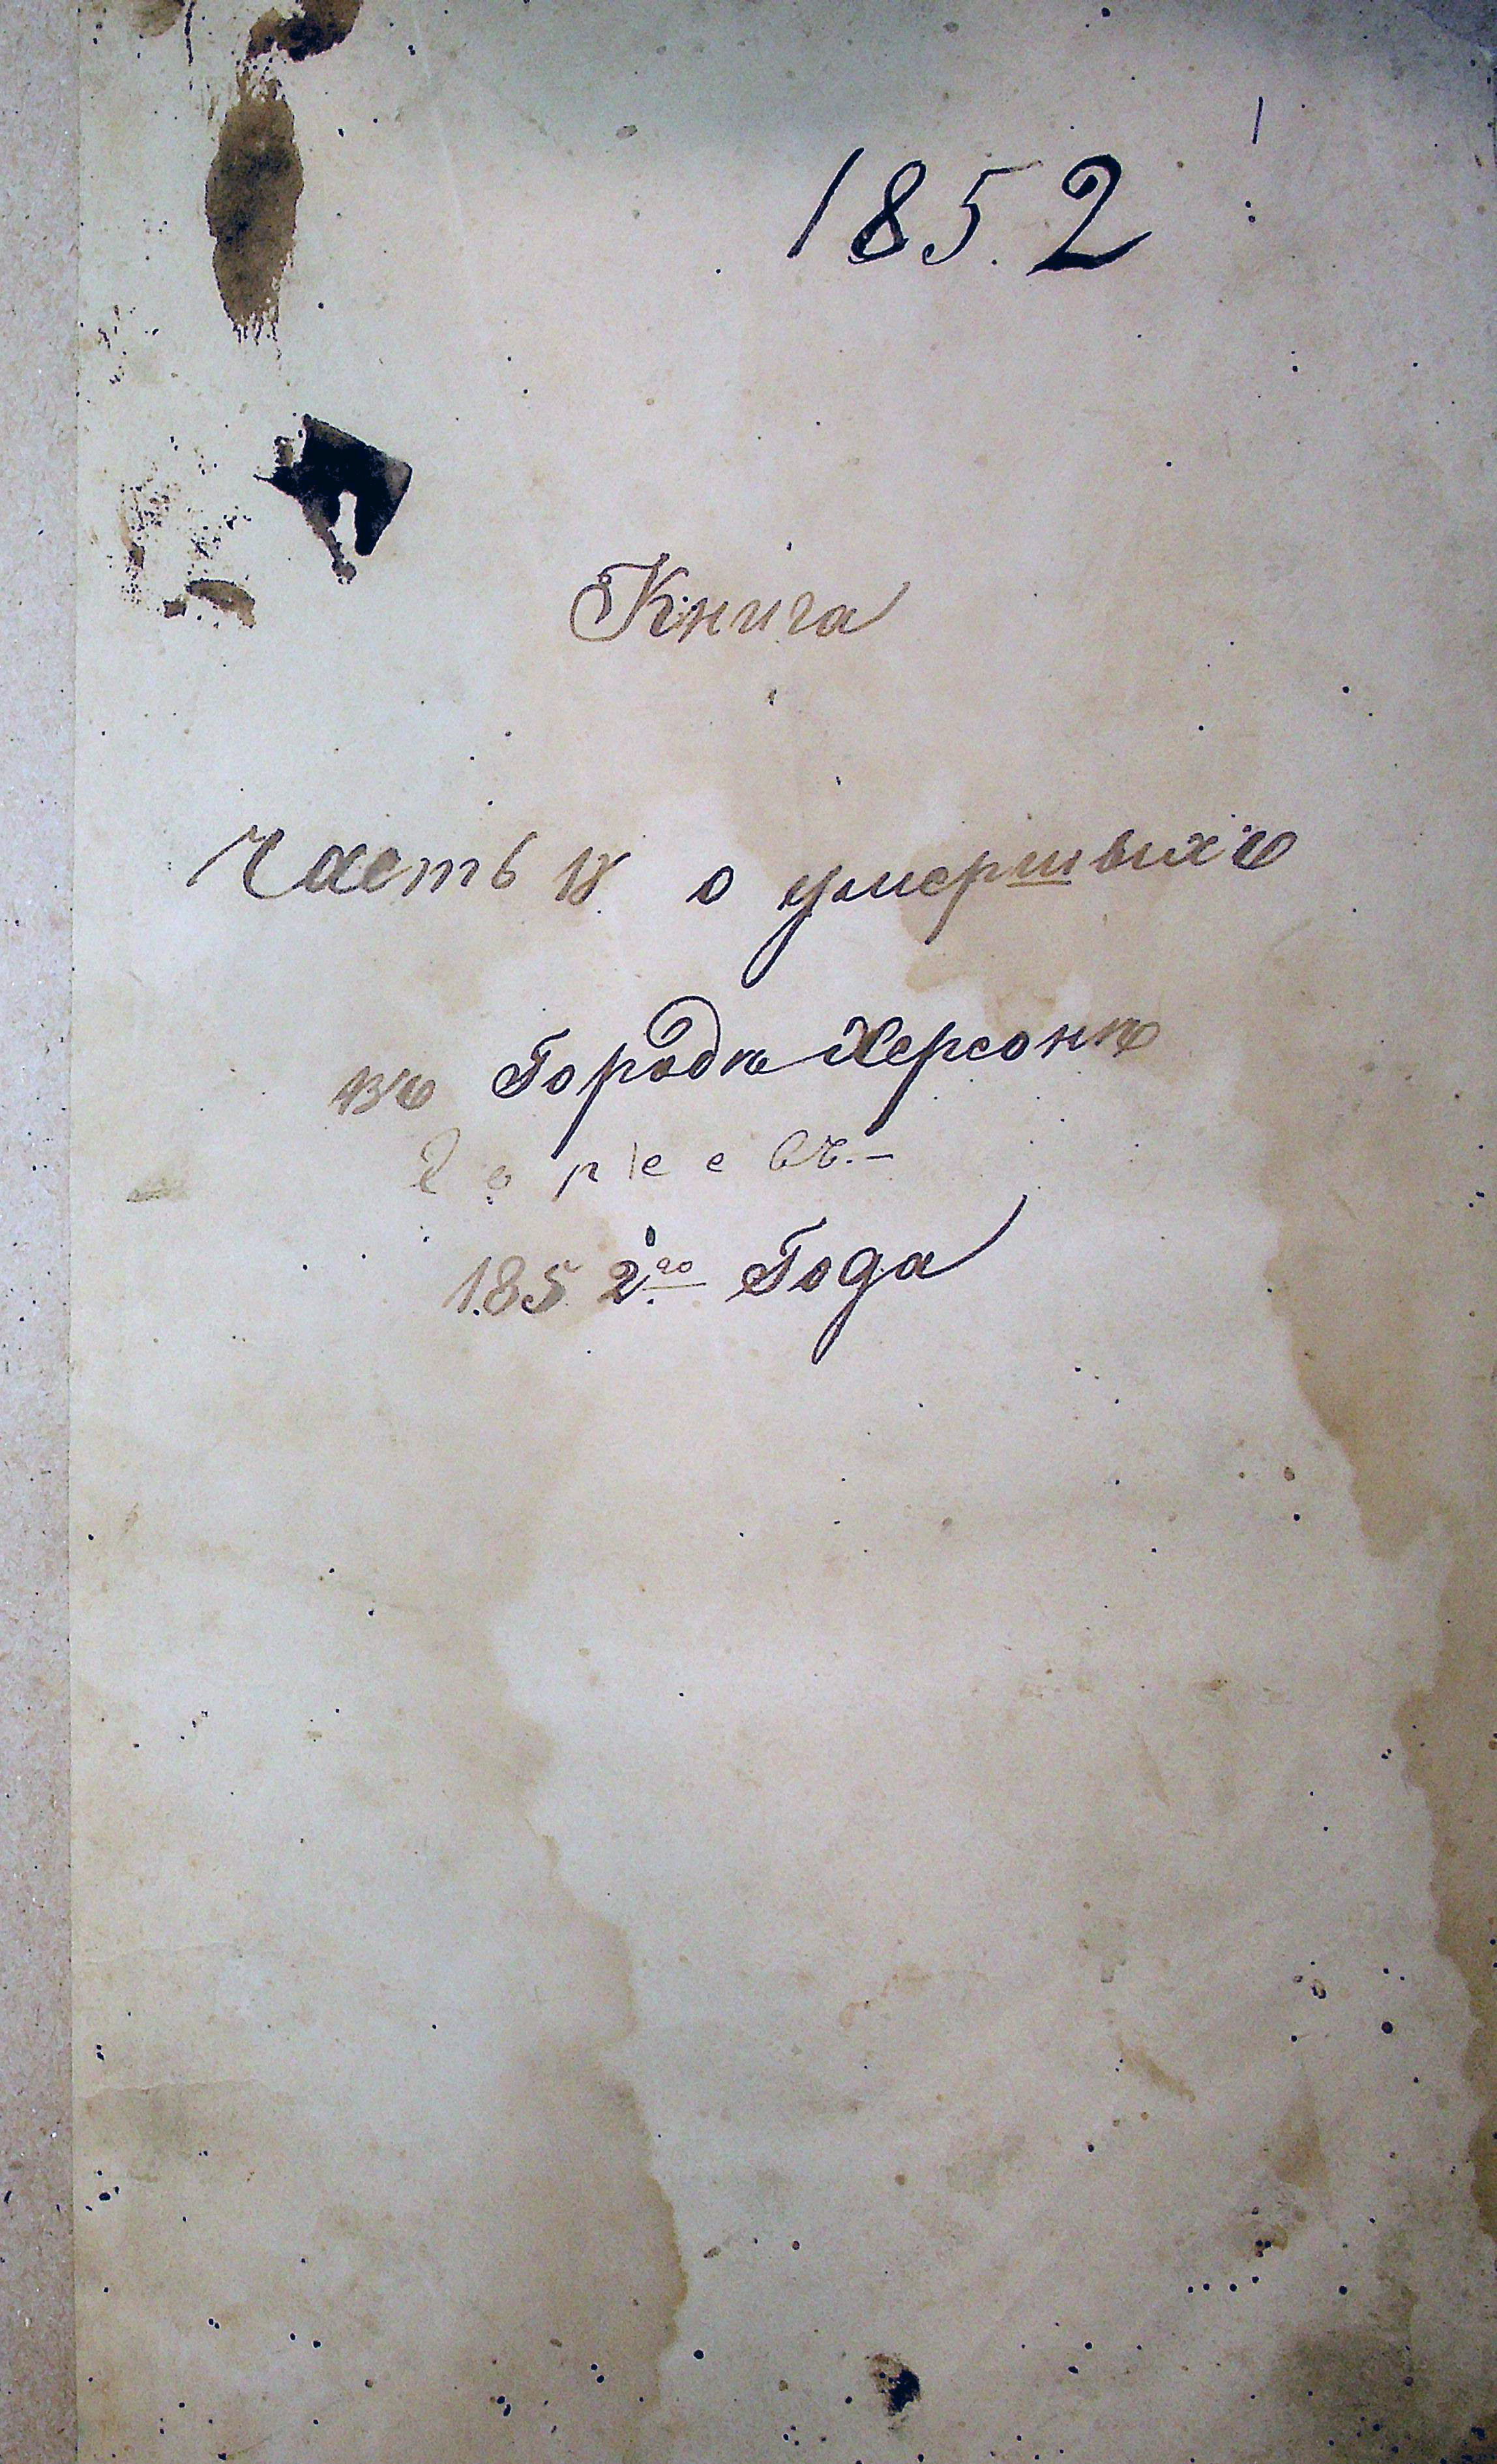 1852
Книга
Часть IV о умершихъ
въ Городѣ Херсонѣ
Евреевъ.-
1852го Года